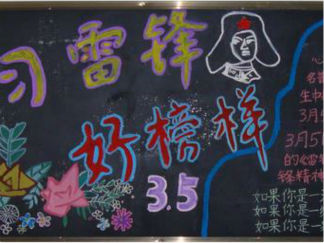 习雷锋
好榜样
3.5
心
生中
3月5
3月5日
的《雷
锋精神
如果你是一
如果你是一
如果你是一